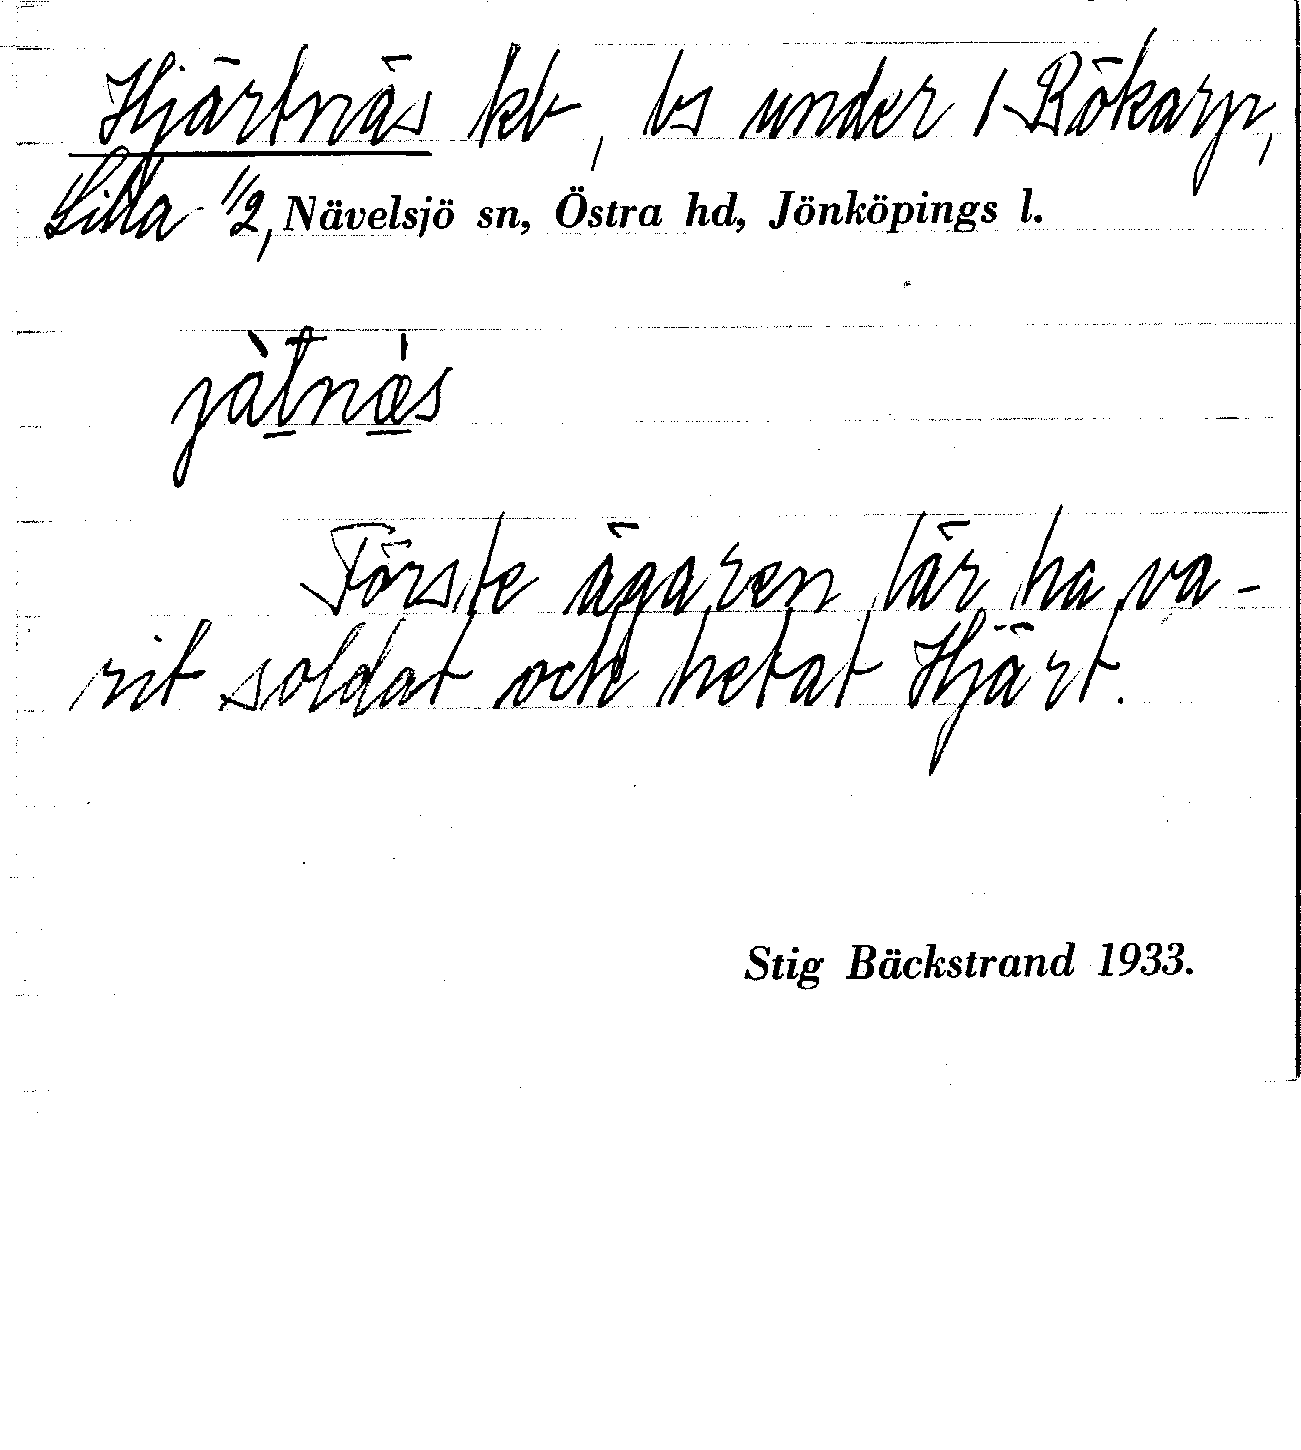 Hjärtnäs kb, ls under 1 Bökarp,
Lilla 1/2, Nävelsjö sn, Östra hd, Jönköpings l.
jàtnæ̀s
Förste ägaren lär ha va-
rit soldat och hetat Hjärt.
Stig Bäckstrand 1933.